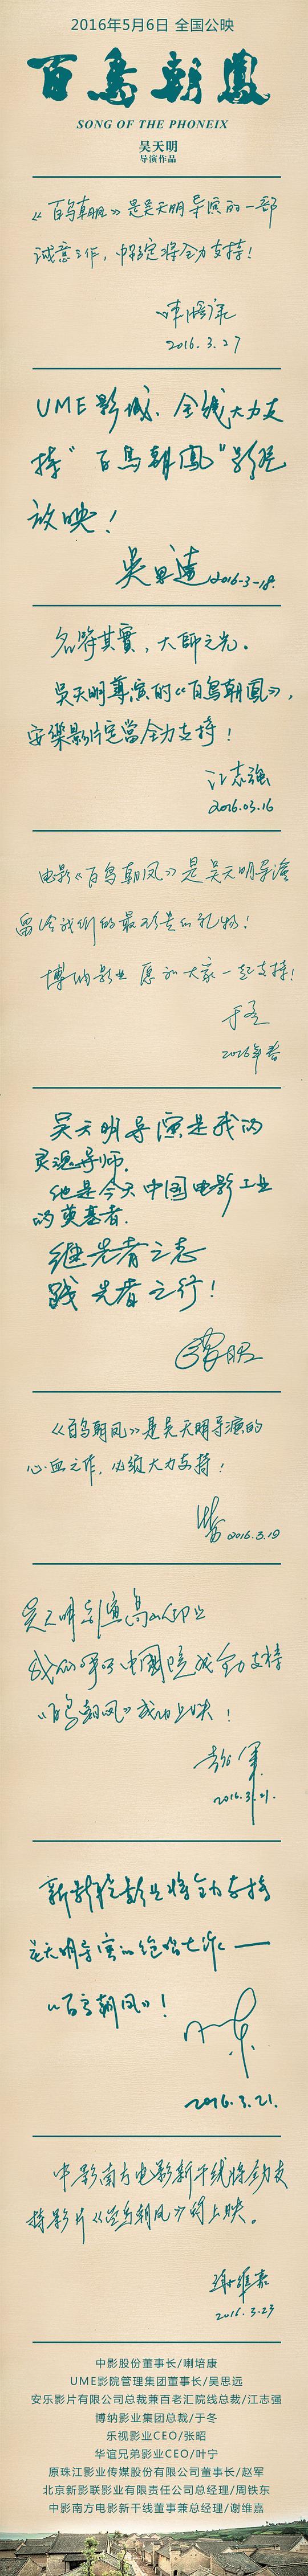 2016年5月6日 全国公映
百鸟朝凤
SONG OF THE PHONEIX
吴天明
导演作品
《百鸟朝凤》是吴天明导演的一部
诚意之作，中影定将全力支持！
2016.3.27
UME影城、全线大力支
持“百鳥朝鳳”影片
放映！
吴思遠 2016-3-18.
名符其實，大師之光。
吴天明導演的《百鸟朝鳳》，
安樂影片定當全力支持！
江志强
2016.03.16
电影《百鸟朝凤》是吴天明导演
留给我们的最珍贵的礼物！
博纳影业愿和大家一起支持！
于冬
2016年春
吴天明导演是我的
灵魂导师.
他是今天中国电影工业
的奠基者.
继先者之志
践先者之行！
张昭
《百鸟朝凤》是吴天明导演的
心血之作，必须大力支持！
2016.3.19
吴天明导演高山仰止
全力支持
《百鸟朝凤》成功上映！
赵军
2016.3.21.
新影联影业将全力支持
吴天明导演的绝唱之作——
《百鸟朝凤》！
2016.3.21.
中影南方电影新干线将全力支
持影片《百鸟朝凤》的上映。
谢維嘉
2016.3.23
中影股份董事长/喇培康
UME影院管理集团董事长/吴思远
安乐影片有限公司总裁兼百老汇院线总裁/江志强
博纳影业集团总裁/于冬
乐视影业CEO/张昭
华谊兄弟影业CEO/叶宁
原珠江影业传媒股份有限公司董事长/赵军
北京新影联影业有限责任公司总经理/周铁东
中影南方电影新干线董事兼总经理/谢维嘉